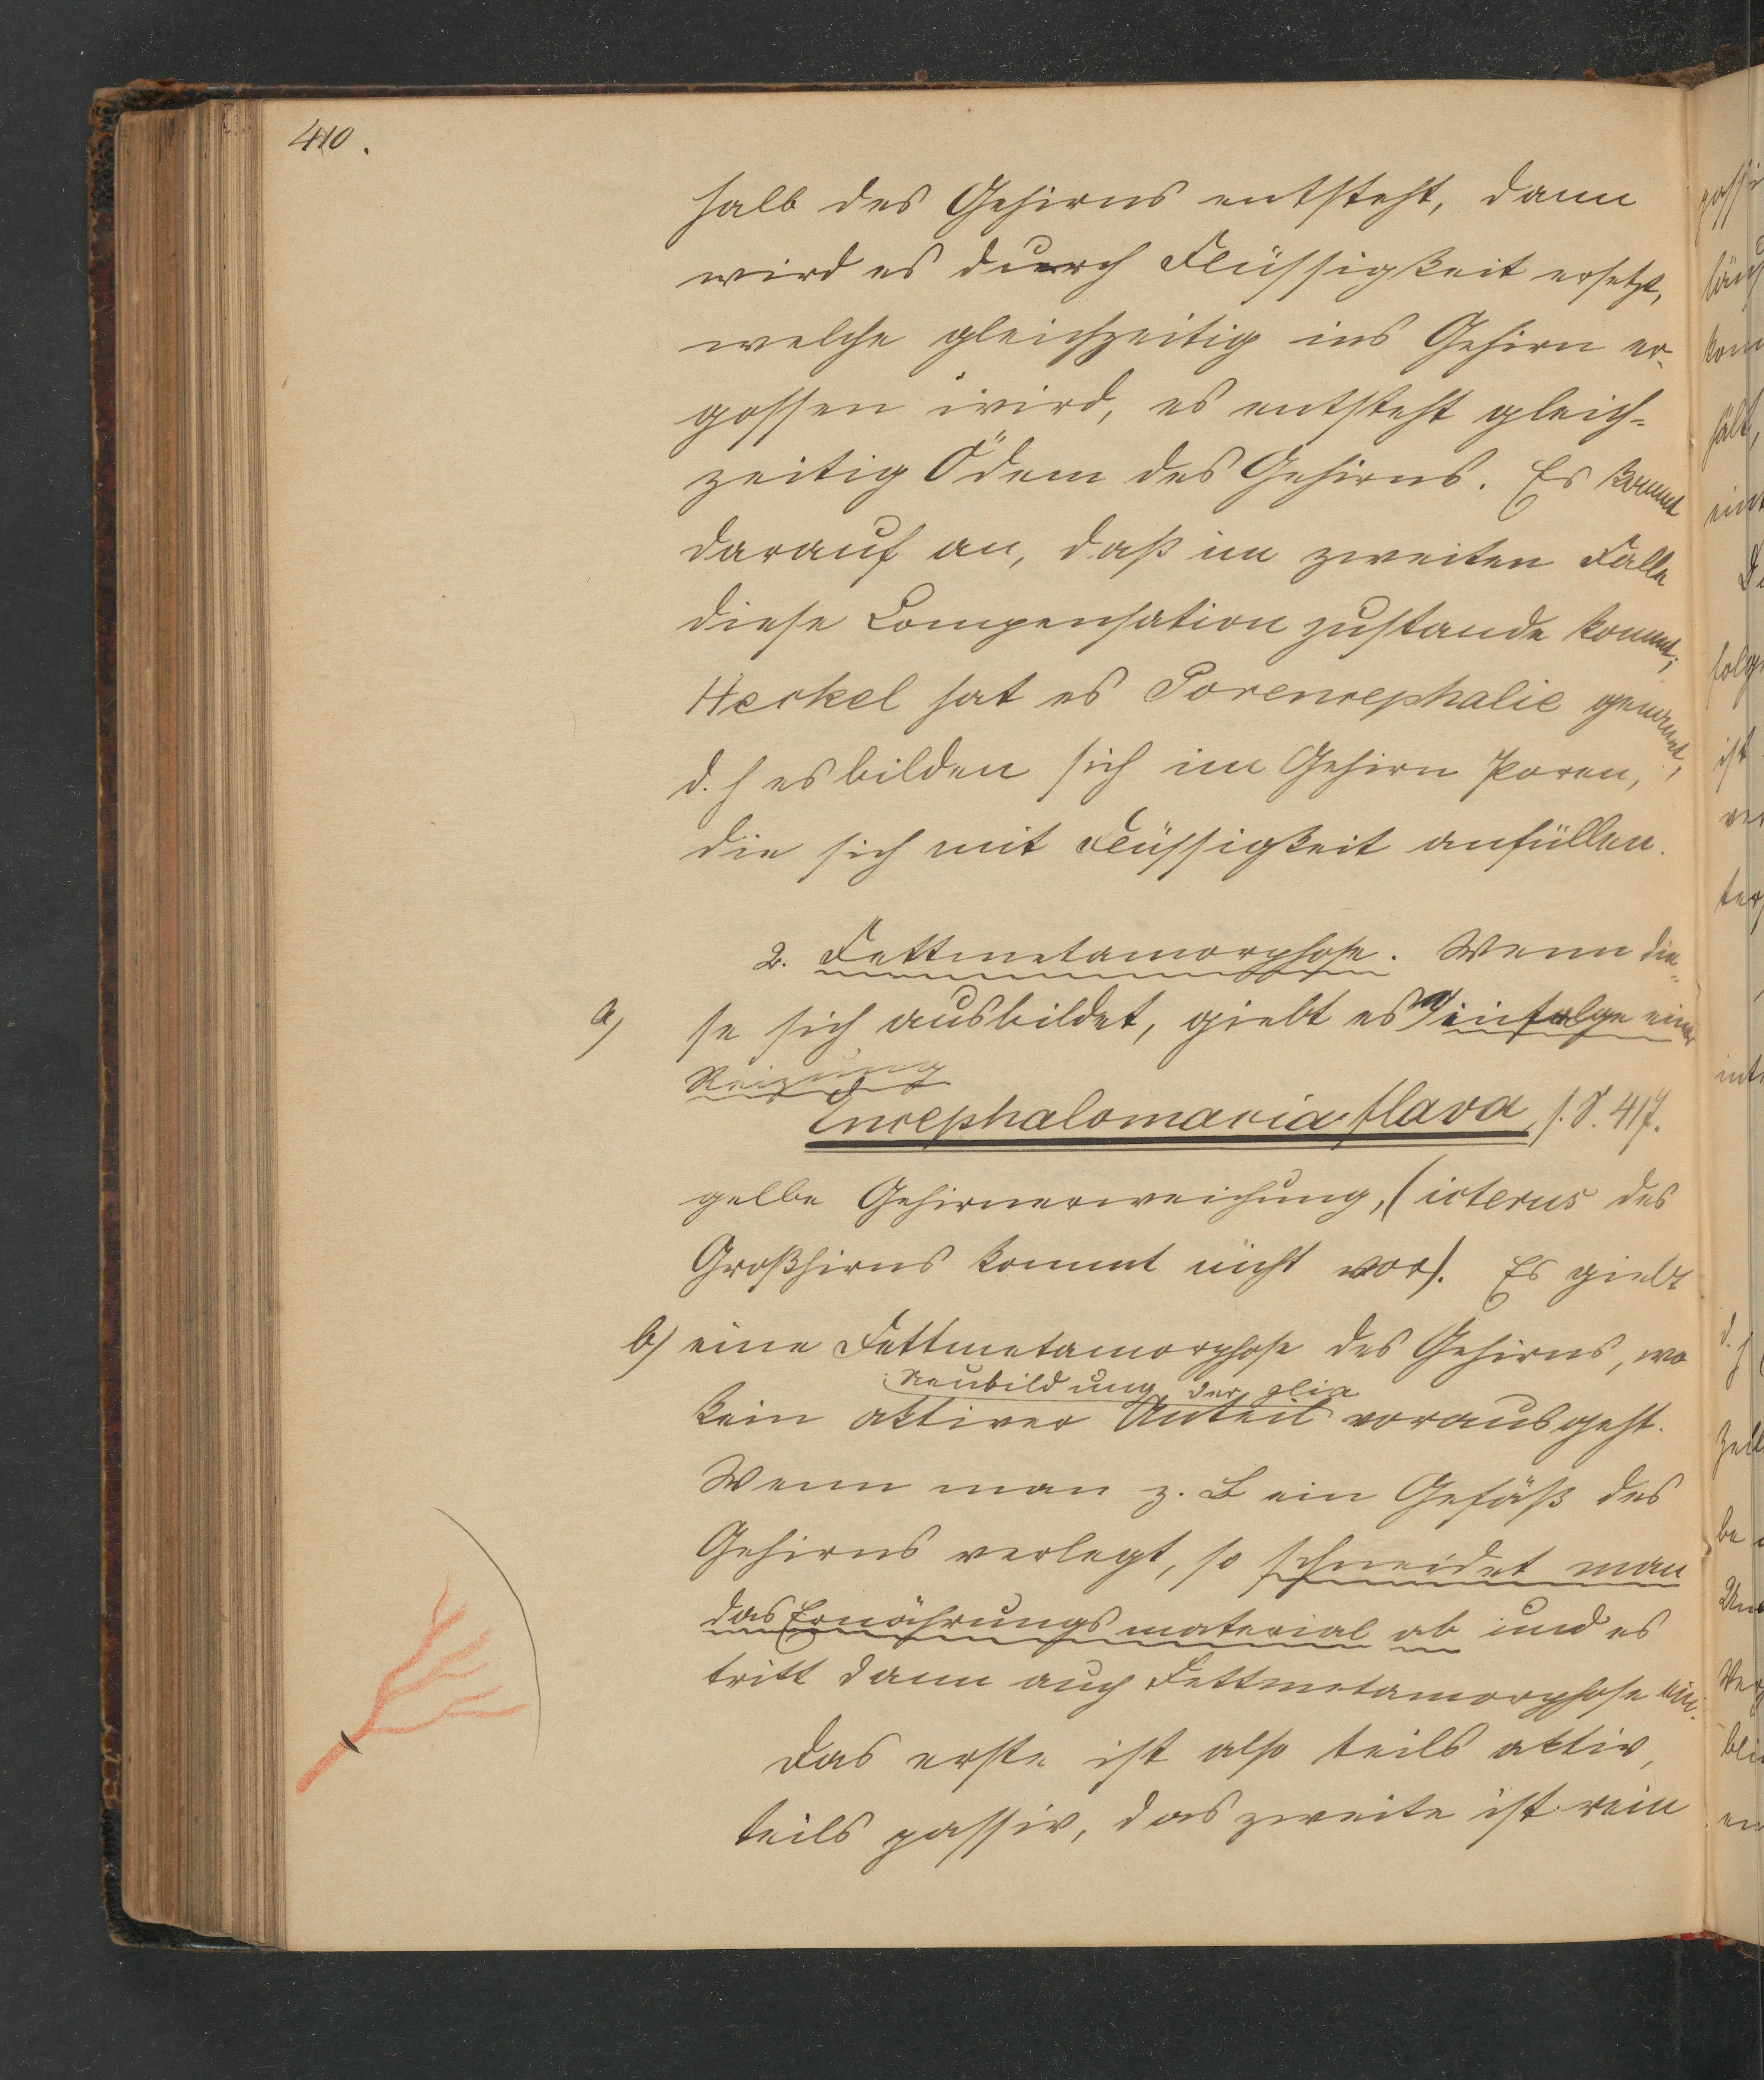 410.
halb des Gehirns entsteht, dann
wird es durch Flüssigkeit ersetzt,
welche gleichzeitig ins Gehirn er-
gossen wird, es entsteht gleich-
zeitig Ödem des Gehirns. Es kommt
darauf an, daß im zweiten Falle
diese Compensation zustande kommt;
Heckel hat es Porencephalie genannt,
d. h es bilden sich im Gehirn Poren,
die sich mit Flüssigkeit anfüllen.
2. Fettmetamorphose. Wenn die-
a) se sich ausbildet, giebt es infolge einer
Reizung
Encephalomacia flava, s. S. 417.
gelbe Gehirnerweichung, (icterus des
Großhirns kommt nicht vor). Es giebt
b) eine Fettmetamorphose des Gehirns, wo
Neubildung der glia
kein aktiver Anteil vorausgeht.
Wenn man z. B ein Gefäß des
Gehirns verlegt, so schneidet man
das Ernährungsmaterial ab und es
tritt dann auch Fettmetamorphose ein.
Das erste ist also teils aktiv,
teils passiv, das zweite ist rein